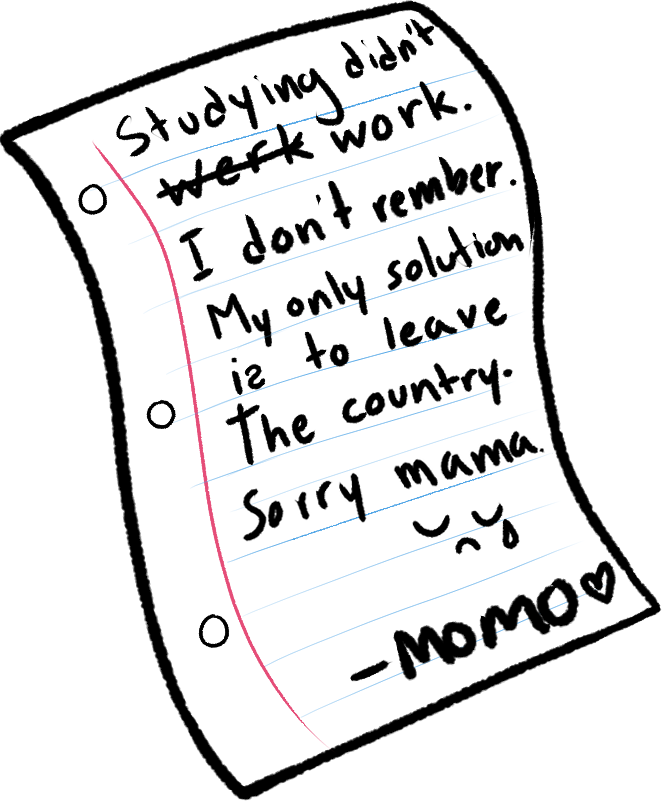 Studying didn't
werk work.
I don't rember.
My only solution
is to leave
The country.
Sorry mama.
-MOMO♡